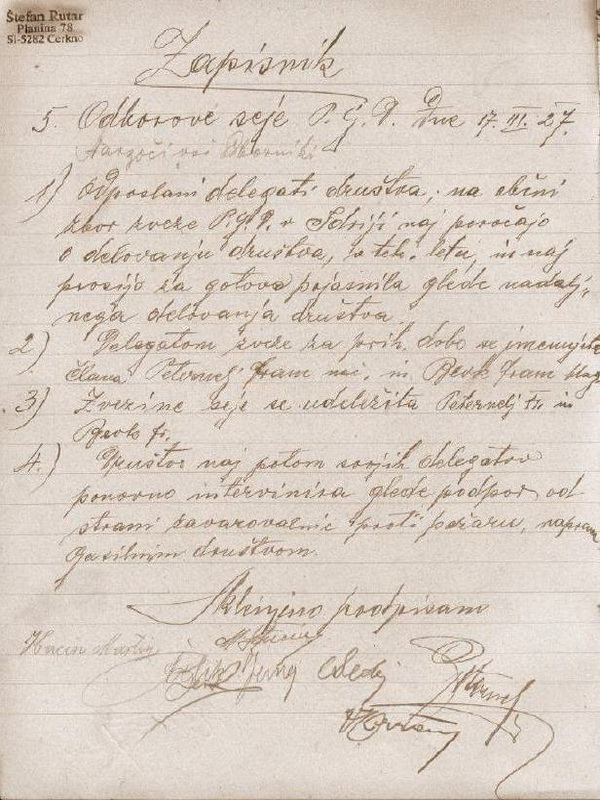 Štefan Rutar
Planina 78
SI-5282 Cerkno
Zapisnik
5. Odborove seje P. G. D. Dne 17. III. 27.
Navzoči vsi Odborniki
1) Odposlani delegati društva, na občni
zbor zveze P.G.D. v Idriji naj poročajo
o delovanju društva, v teh. letu, in naj
prosijo za gotova pojasnila glede nadalj-
nega delovanja društva.
2) Delegatom zveze za prih. dobo se imenujeta
člana Peternelj Franc in Bevk Franc
3) Zvezine seje se udeležita Peternelj Fr. in
Bevk fr.
4.) Društvo naj potom svojih delegatov
ponovno intervinira glede podpor, od
strani zavarovalnic proti požaru, napram
Gasilnim društvom.
Sklenjeno podpisam